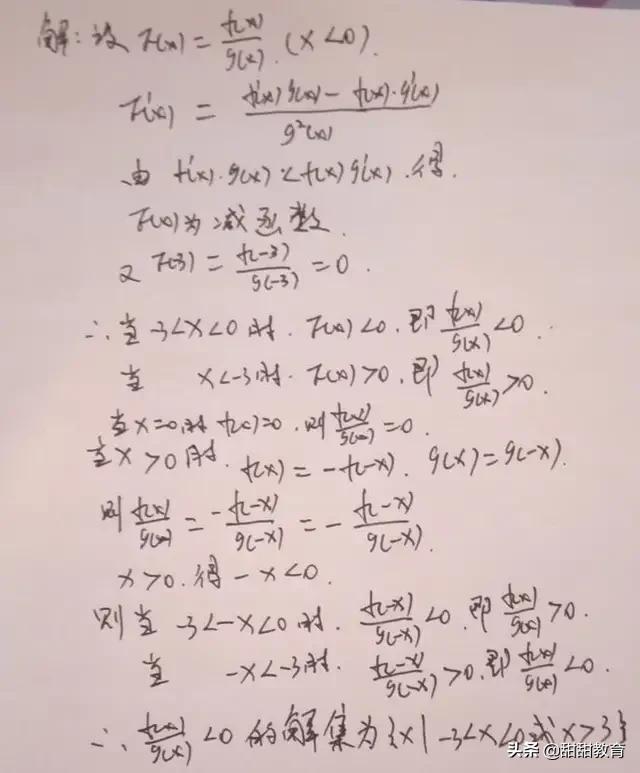 解:设 F(x) = f(x)/g(x) . (x<0).
F'(x) = (f'(x)g(x) - f(x)·g'(x))/g²(x)
由 f'(x)·g(x)<f(x)g'(x).得.
F(x)为减函数.
又 F(-3) = f(-3)/g(-3) = 0.
∴当 -3<x<0时. F(x)<0.即 f(x)/g(x) <0.
当 x<-3时. F(x)>0.即 f(x)/g(x) >0.
当x=0时 f(x)=0.则 f(x)/g(x) =0.
当x>0时. f(x) = -f(-x). g(x)=g(-x).
则 f(x)/g(x) = -f(-x)/g(-x) = - f(-x)/g(-x).
x>0.得 -x<0.
则当 -3<-x<0时. f(-x)/g(-x) <0.即 f(x)/g(x) >0.
当 -x<-3时. f(-x)/g(-x) >0.即 f(x)/g(x) <0.
∴ f(x)/g(x) <0 的解集为{x|-3<x<0或x>3}
头条 @甜甜教育